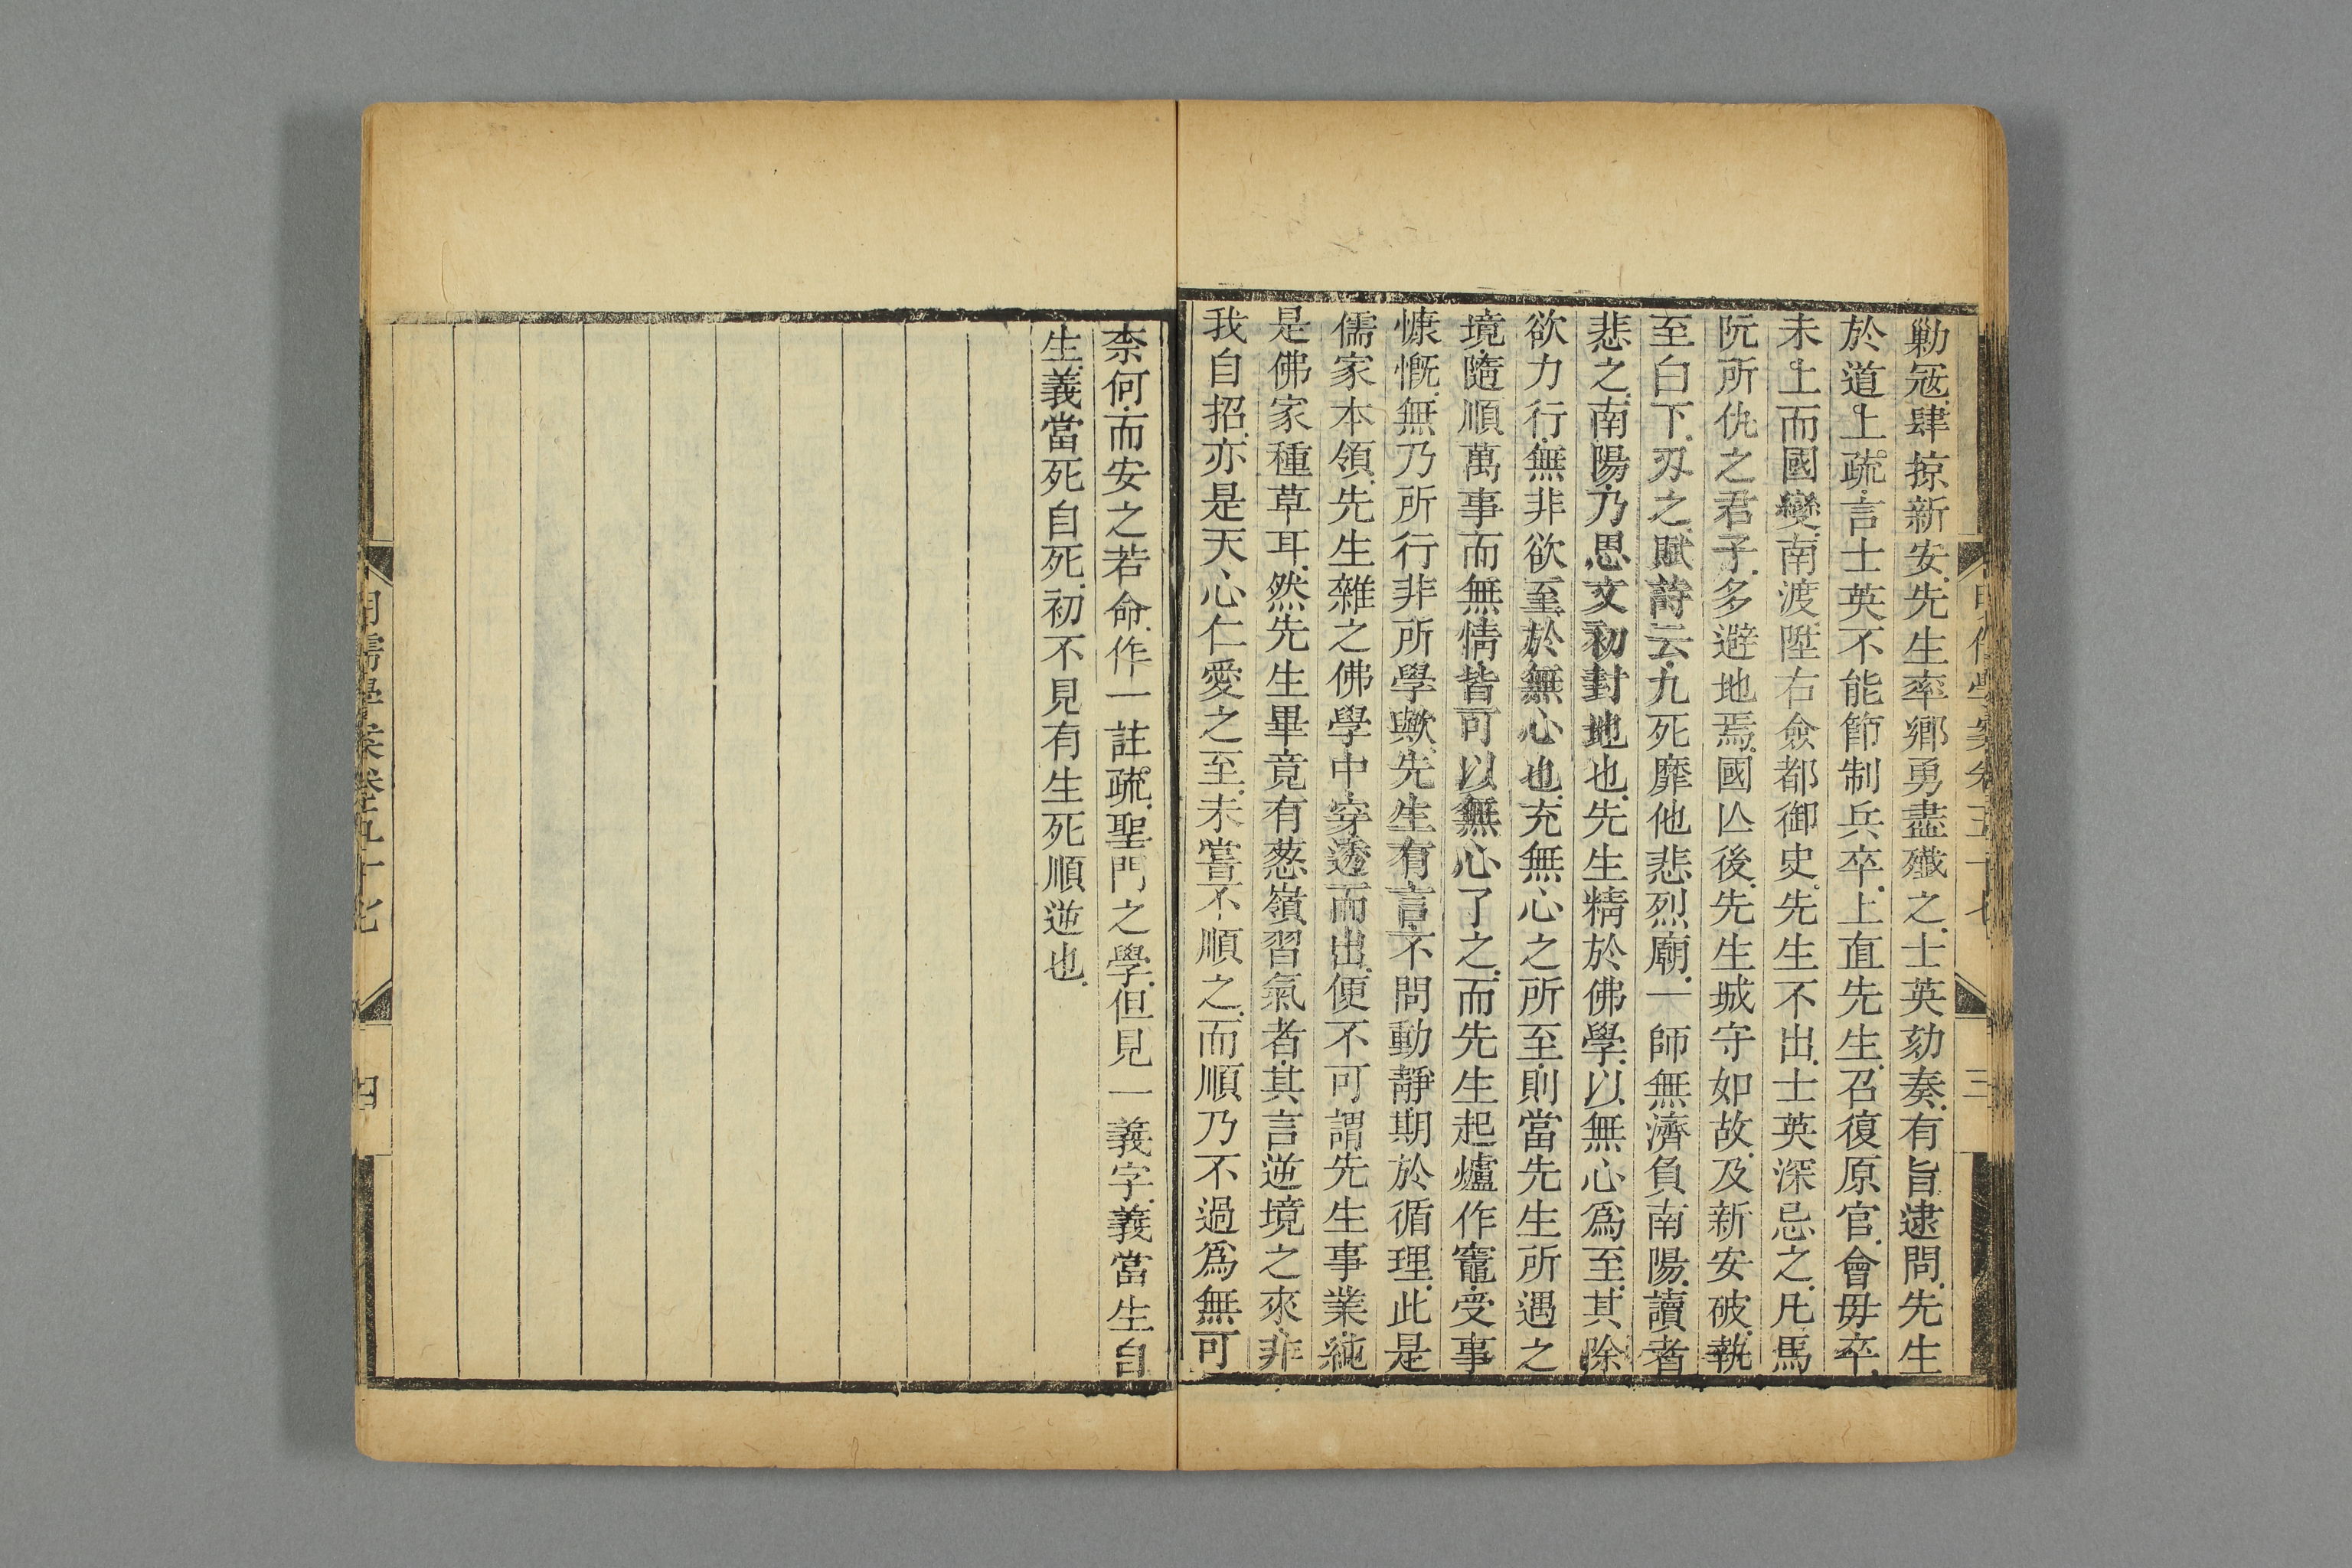 勦冦肆掠新安先生率鄉勇盡殱之士英劾奏有旨逮問先生
於道上疏言士英不能節制兵卒上直先生召復原官會毋卒
未上而國變南渡陞右僉都御史先生不出士英深忌之凡馬
阮所仇之君子多避地焉國亾後先生城守如故及新安破執
至白下刃之賦詩云九死靡他悲烈廟一師無濟負南陽讀者
悲之南陽乃思文初封地也先生精於佛學以無心爲至其除
欲力行無非欲至於無心也充無心之所至則當先生所遇之
境隨順萬事而無情皆可以無心了之而先生起爐作竈受事
慷慨無乃所行非所學歟先生有言不問動靜期於循理此是
儒家本領先生雜之佛學中穿透而出便不可謂先生事業純
是佛家種草耳然先生畢竟有葱嶺習氣者其言逆境之來非
我自招亦是天心仁愛之至未嘗不順之而順乃不過爲無可
三
奈何而安之若命作一註疏聖門之學但見一義字義當生自
生義當死自死初不見有生死順逆也
明儒學案卷五十七
四